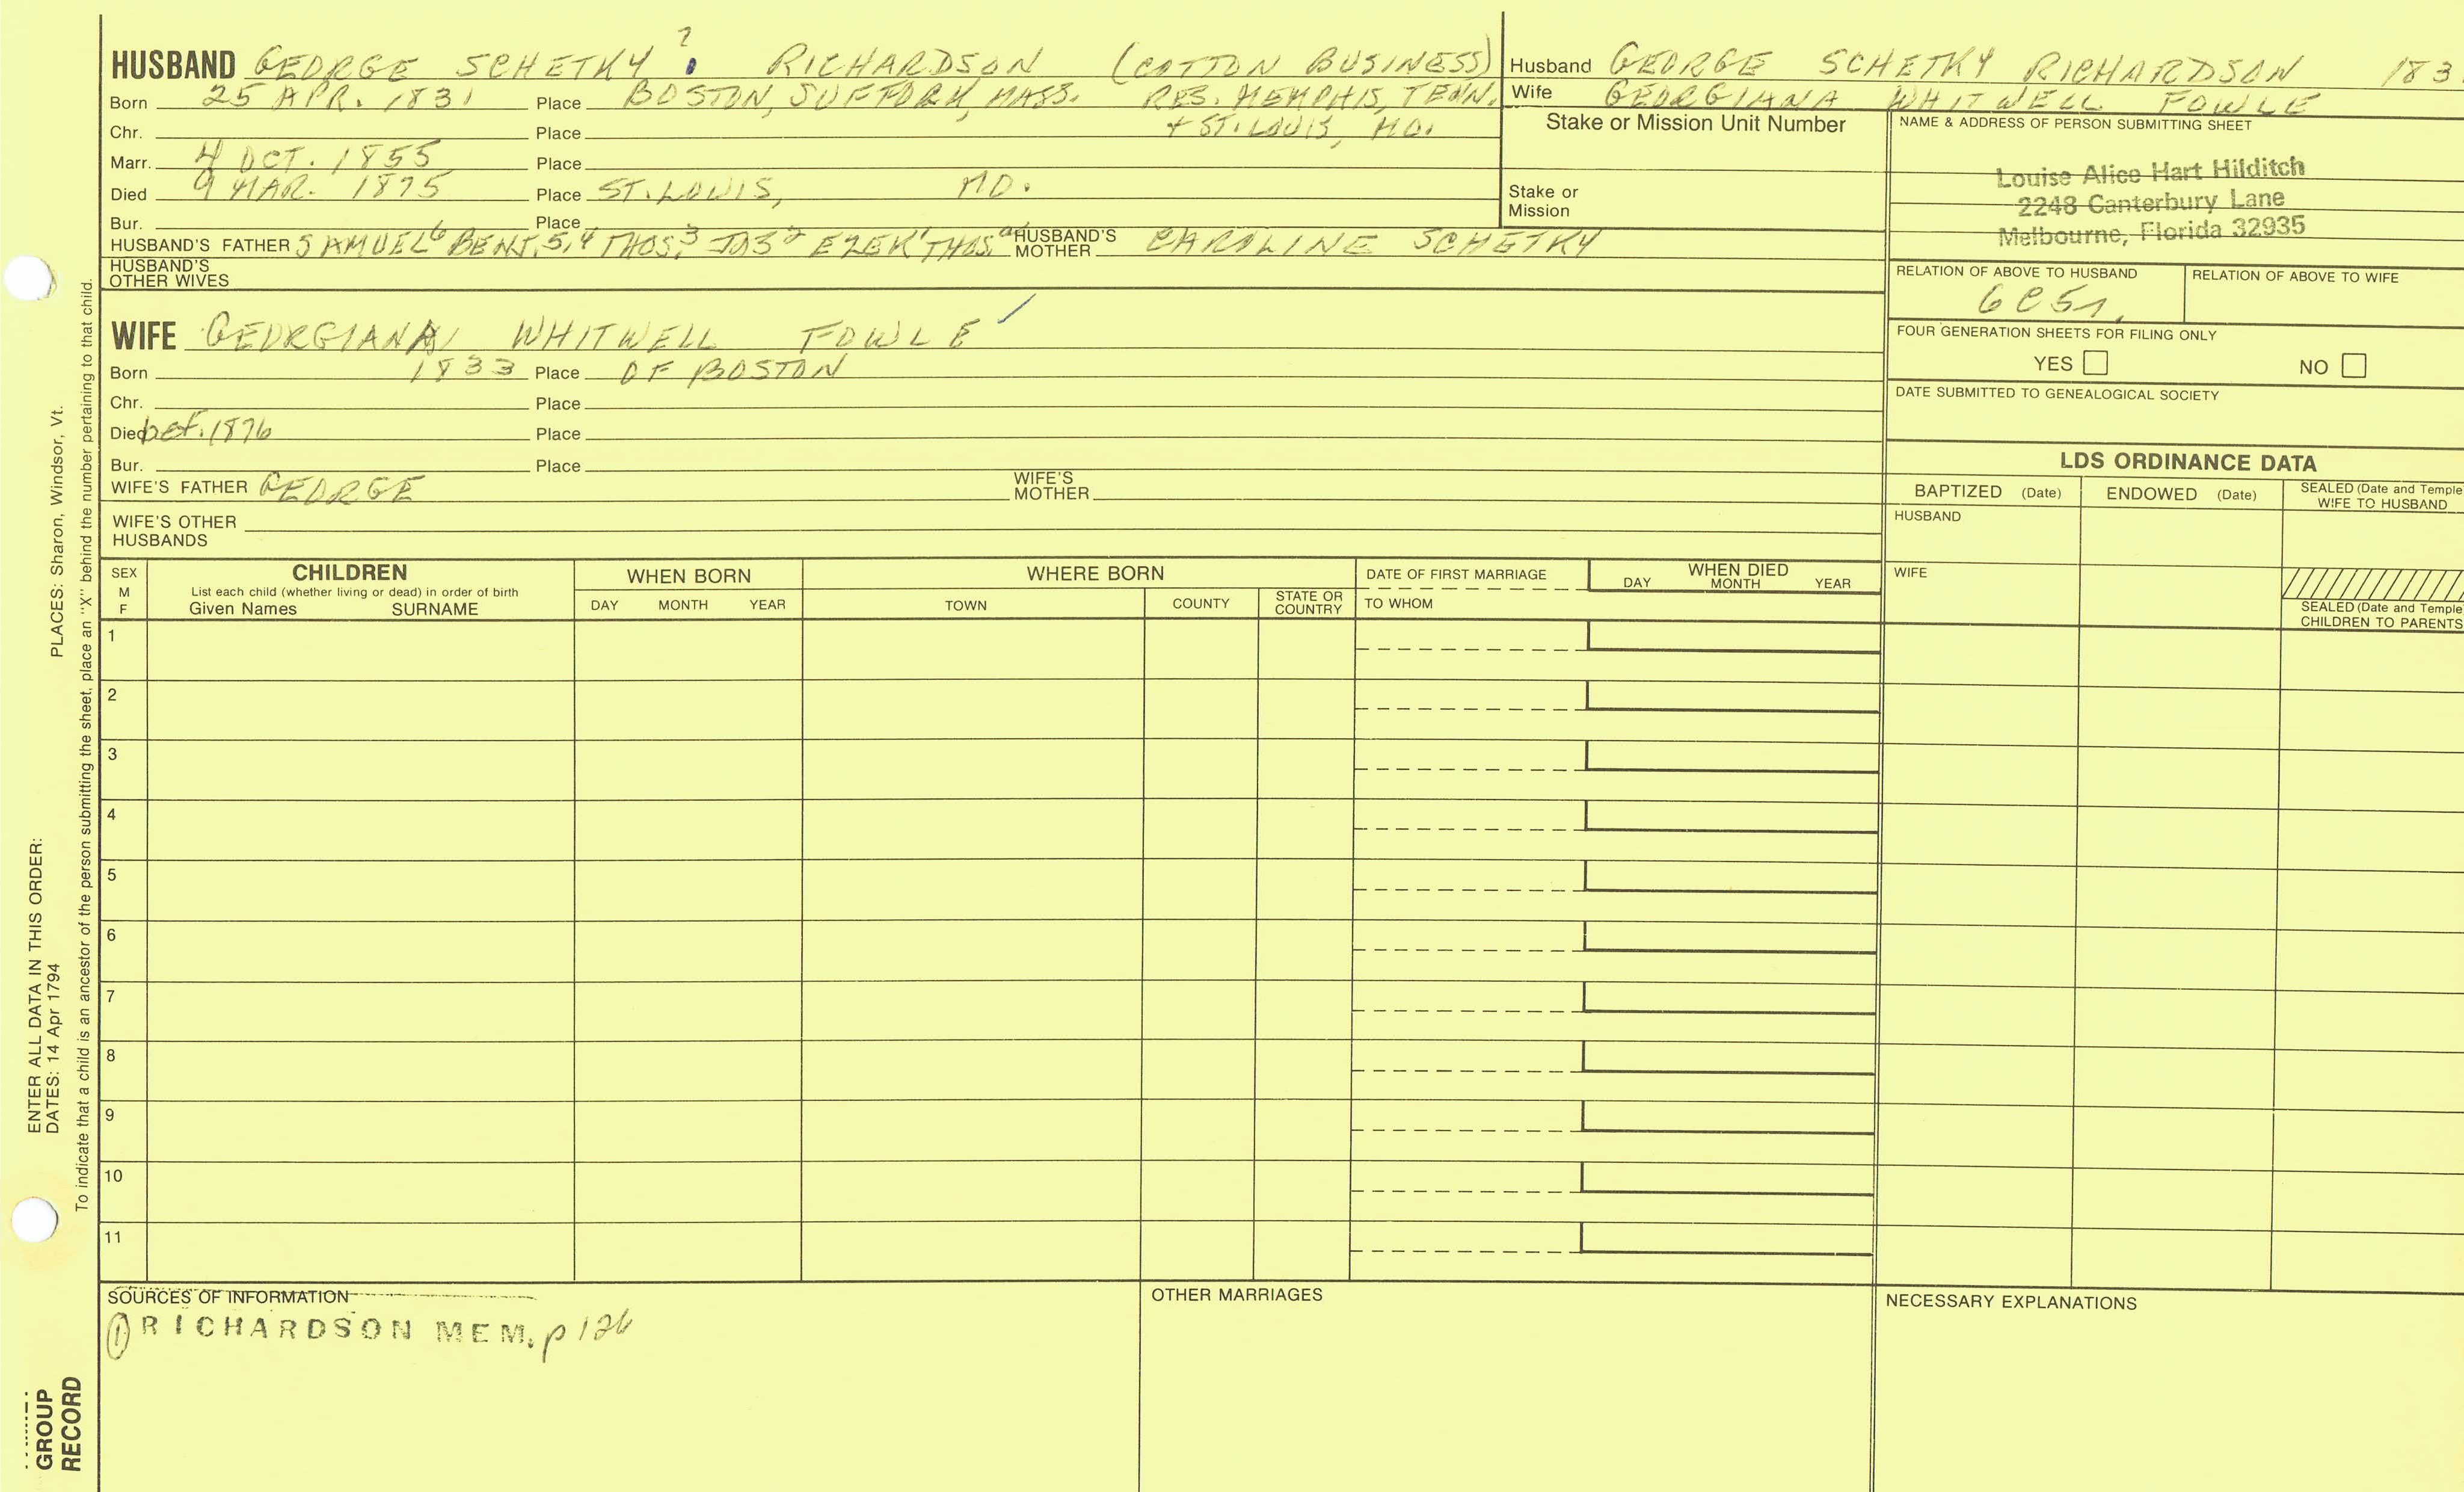 HUSBAND GEORGE SCHETKY ? RICHARDSON (COTTON BUSINESS)
Born 25 APR. 1831 Place BOSTON, SUFFORK, MASS. RES. MEMPHIS, TENN.
Chr. Place + ST. LOUIS, MO.
Marr. 4 OCT. 1855 Place
Died 9 MAR. 1875 Place ST. LOUIS, MO.
Bur. Place
HUSBAND'S FATHER SAMUEL6 BENJ.5,4 THOS.3 JOS2 EZEK1 THOS.a HUSBAND'S MOTHER CAROLINE SCHETKY
HUSBAND'S OTHER WIVES
WIFE GEORGIANA WHITWELL FOWLE
Born 1833 Place OF BOSTON
Chr. Place
Died bef. 1876 Place
Bur. Place
WIFE'S FATHER GEORGE WIFE'S MOTHER
WIFE'S OTHER HUSBANDS
Husband GEORGE SCHETKY RICHARDSON 183
Wife GEORGIANA WHITWELL FOWLE
Stake or Mission Unit Number
Stake or Mission
NAME & ADDRESS OF PERSON SUBMITTING SHEET
Louise Alice Hart Hilditch
2248 Canterbury Lane
Melbourne, Florida 32935
RELATION OF ABOVE TO HUSBAND RELATION OF ABOVE TO WIFE
FOUR GENERATION SHEETS FOR FILING ONLY
YES NO
DATE SUBMITTED TO GENEALOGICAL SOCIETY
LDS ORDINANCE DATA
BAPTIZED (Date) ENDOWED (Date) SEALED (Date and Temple
WIFE TO HUSBAND
HUSBAND
WIFE
SEALED (Date and Temple
CHILDREN TO PARENTS
SEX
M
F
CHILDREN
List each child (whether living or dead) in order of birth
Given Names SURNAME
WHEN BORN
DAY MONTH YEAR
WHERE BORN
TOWN COUNTY STATE OR COUNTRY
DATE OF FIRST MARRIAGE
TO WHOM
WHEN DIED
DAY MONTH YEAR
1
2
3
4
5
6
7
8
9
10
11
SOURCES OF INFORMATION
① RICHARDSON MEM. p 126
OTHER MARRIAGES
NECESSARY EXPLANATIONS
ENTER ALL DATA IN THIS ORDER:
DATES: 14 Apr 1794 PLACES: Sharon, Windsor, Vt.
To indicate that a child is an ancestor of the person submitting the sheet, place an "X" behind the number pertaining to that child.
GROUP
RECORD